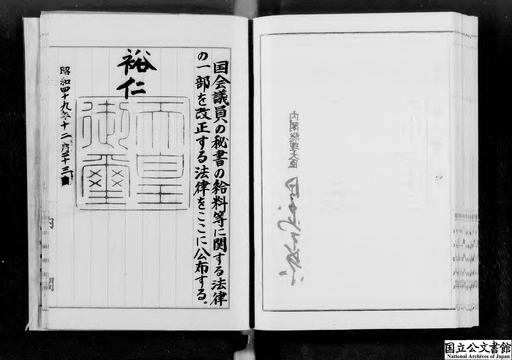 国会議員の秘書の給料等に関する法律
の一部を改正する法律をここに公布する。
裕仁
天皇
御璽
昭和四十九年十二月二十三日
内閣総理大臣
国立公文書館
National Archives of Japan